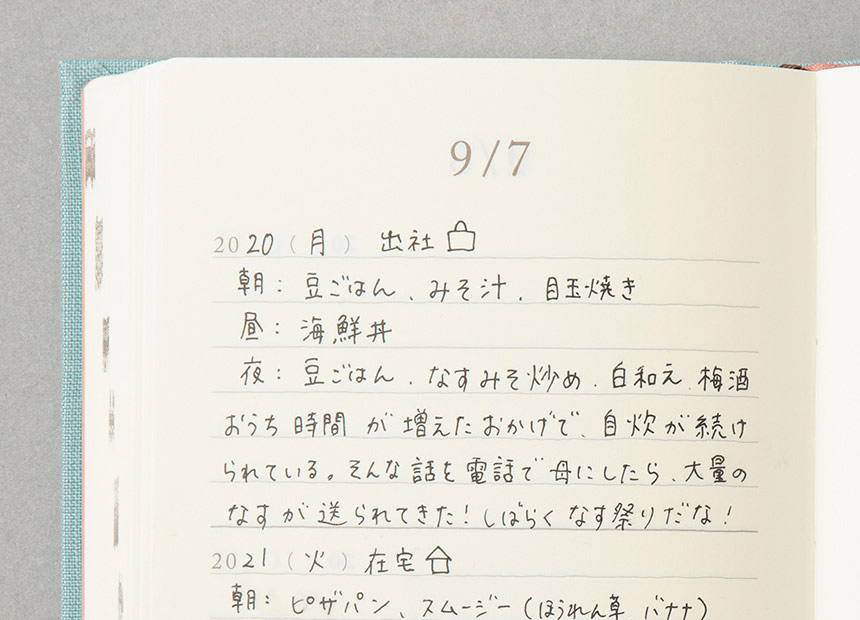 9/7
2020（月）出社
朝：豆ごはん、みそ汁、目玉焼き
昼：海鮮丼
夜：豆ごはん、なすみそ炒め、白和え、梅酒
おうち時間が増えたおかげで、自炊が続け
られている。そんな話を電話で母にしたら、大量の
なすが送られてきた！しばらくなす祭りだな！
2021（火）在宅
朝：ピザパン、スムージー（ほうれん草 バナナ）